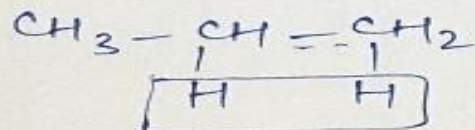 CH3 - CH = CH2
H H